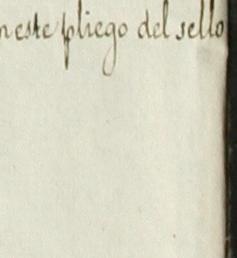 n este pliego del sello